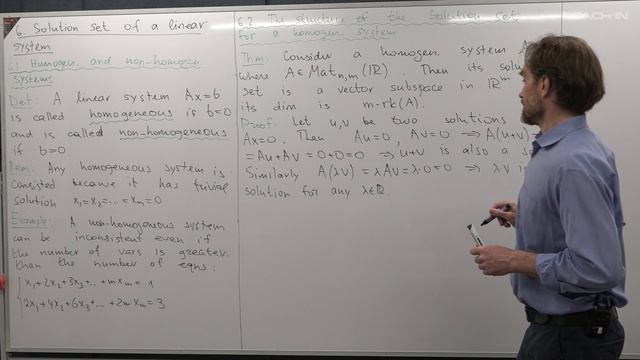 6. Solution set of a linear
system
6.1 Homogen. and non-homogen.
systems
Def: A linear system Ax=b
is called homogeneous if b=0
and is called non-homogeneous
if b≠0
Rem: Any homogeneous system is
consisted because it has trivial
solution x₁=x₂=...=xₘ=0
Example: A non-homogeneous system
can be inconsistent even if
the number of vars is greater
than the number of eqns:
x₁+2x₂+3x₃+...+mxₘ=1
2x₁+4x₂+6x₃+...+2mxₘ=3
6.2 The structure of the solution set
for a homogen. system
Thm: Consider a homogen. system
where A∈Matₙ,ₘ(ℝ). Then its
set is a vector subspace in ℝᵐ
its dim is m-rk(A).
Proof: Let u,v be two solutions
Ax=0. Then Au=0, Av=0 ⟹ A(u+v)
=Au+Av=0+0=0 ⟹ u+v is also a
Similarly A(λv)=λAv=λ·0=0 ⟹ λv
solution for any λ∈ℝ.